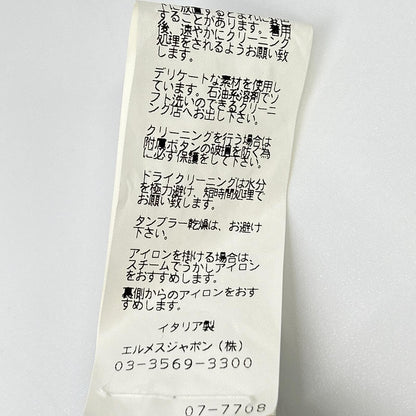 ドに放置するとまれに変
することがあります。着用
後、速やかにクリーニング
処理をされるようお願い致
します。
デリケートな素材を使用し
ています。石油系溶剤でソ
フト洗いのできるクリーニ
ング店へお出し下さい。
クリーニングを行う場合は
附属ボタンの破損を防ぐ為
に必ず保護をして下さい。
ドライクリーニングは水分
を極力避け、短時間処理で
お願い致します。
タンブラー乾燥は、お避け
下さい。
アイロンを掛ける場合は、
スチームでうかしアイロン
をおすすめします。
裏側からのアイロンをおす
すめします。
イタリア製
エルメスジャポン（株）
03-3569-3300
07-7708